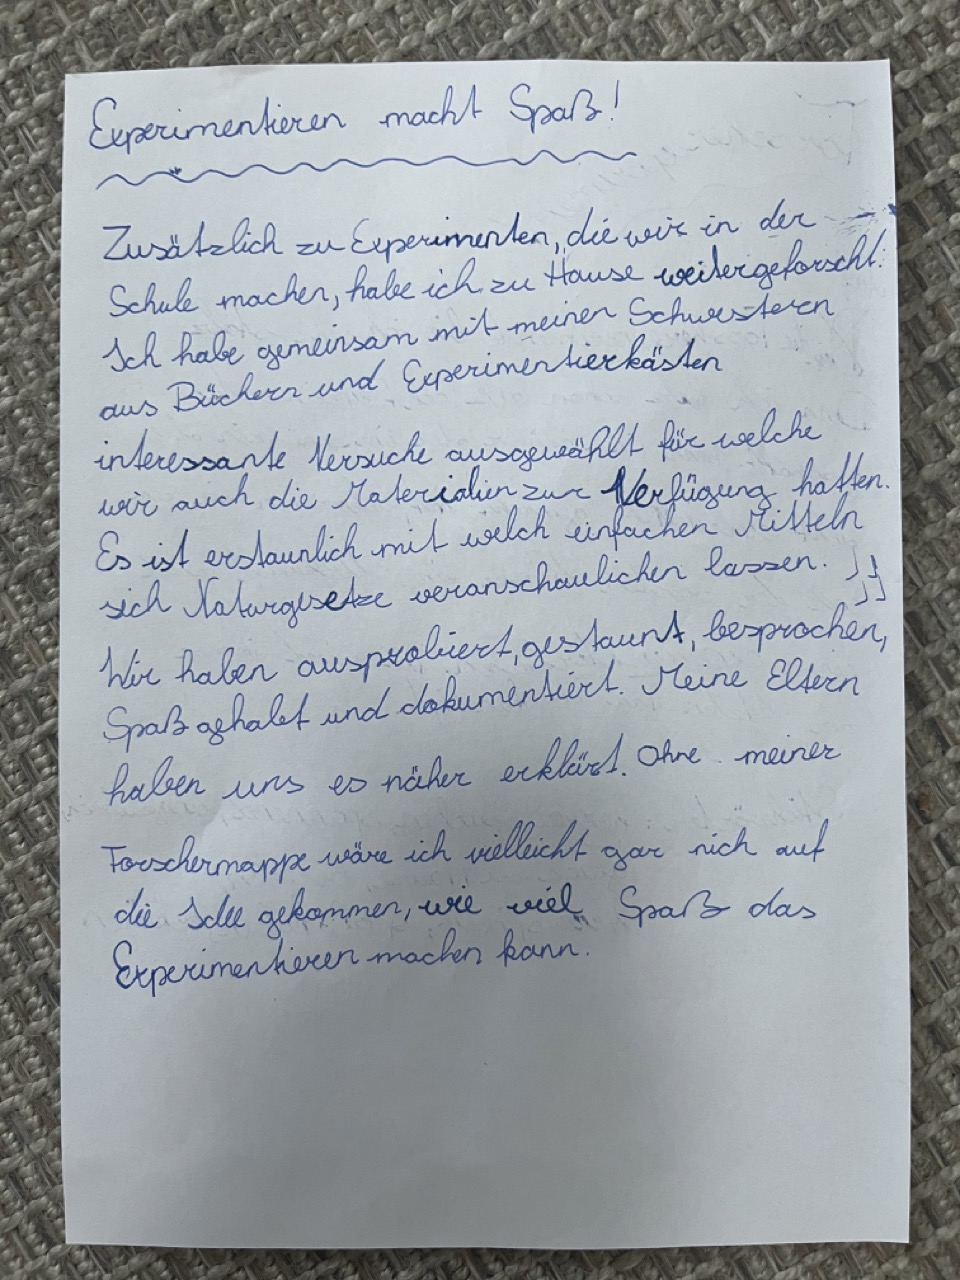 Experimentieren macht Spaß!
Zusätzlich zu Experimenten, die wir in der
Schule machen, habe ich zu Hause weitergeforscht.
Ich habe gemeinsam mit meinen Schwestern
aus Büchern und Experimentierkästen
interessante Versuche ausgewählt für welche
wir auch die Materialien zur Verfügung hatten.
Es ist erstaunlich mit welch einfachen Mitteln
sich Naturgesetze veranschaulichen lassen.
Wir haben ausprobiert, gestaunt, besprochen,
Spaß gehabt und dokumentiert. Meine Eltern
haben uns es näher erklärt. Ohne meiner
Forschermappe wäre ich vielleicht gar nich auf
die Idee gekommen, wie viel Spaß das
Experimentieren machen kann.